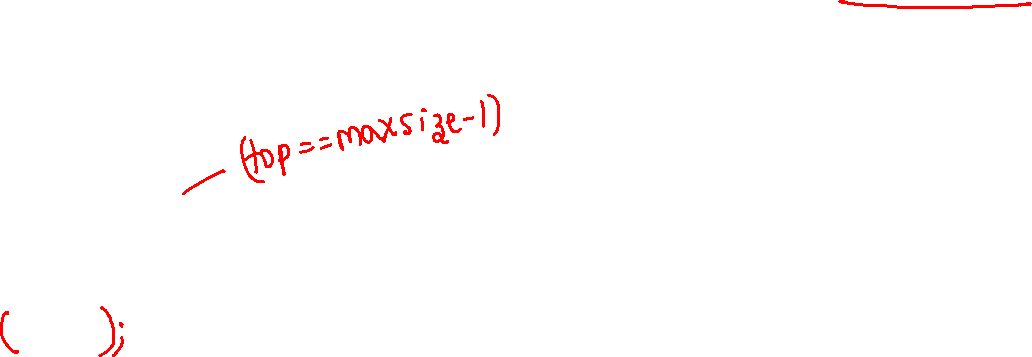 (top==maxsize-1)
( );